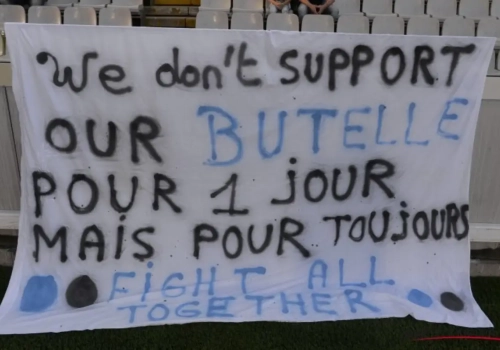 We don't SUPPORT
OUR BUTELLE
POUR 1 JOUR
MAIS POUR TOUJOURS
FIGHT ALL
TOGETHER